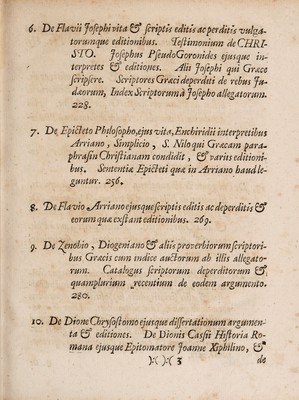 6. De Flavii Josephi vita & scriptis editis ac perditis vulga-
torumque editionibus. Testimonium de CHRI-
STO. Josephus PseudoGoronides ejusque in-
terpretes & editiones. Alii Josephi qui Græce
scripsere. Scriptores Græci deperditi de rebus Ju-
dæorum, Index Scriptorum à Josepho allegatorum.
228.
7. De Epicteto Philosopho, ejus vita, Enchiridii interpretibus
Arriano, Simplicio, S. Nilo qui Græcam para-
phrasin Christianam condidit, & variis editioni-
bus. Sententiæ Epicteti quæ in Arriano haud le-
guntur. 256.
8. De Flavio Arriano ejusque scriptis editis ac deperditis &
eorum quæ exstant editionibus. 269.
9. De Zenobio, Diogeniano & aliis proverbiorum scriptori-
bus Græcis cum indice auctorum ab illis allegato-
rum. Catalogus scriptorum deperditorum &
quamplurium recentium de eodem argumento.
280.
10. De Dione Chrysostomo ejusque dissertationum argumen-
ta & editiones. De Dionis Cassii Historia Ro-
mana ejusque Epitomatore Joanne Xiphilino, &
)( )( 3 de